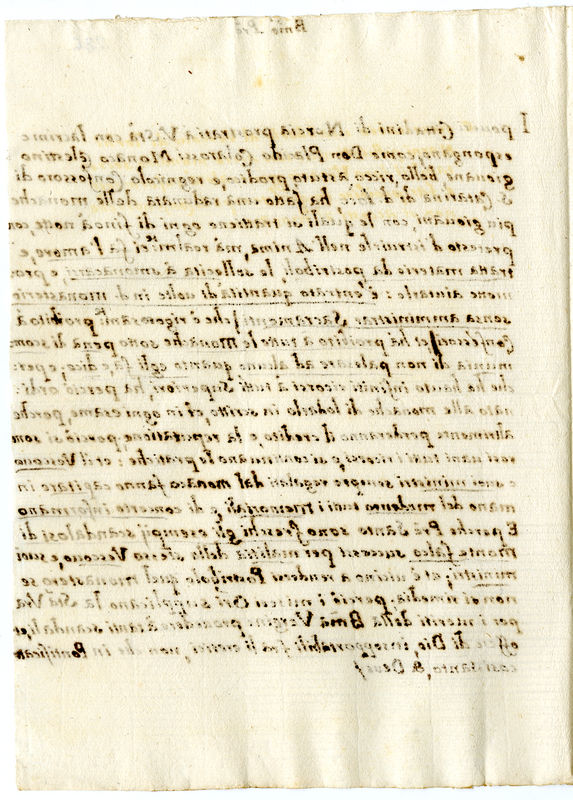 Bmo Prē
I poveri Cittadini di Norcia prostrati à V. Stà con lacrime
espongono, come Don Placido Colarossi Monaco Celestino
giovane bello, ricco astuto prodico, e, regnicolo Confessore di
S. Catarina di d. loco, ha fatto una radunata delle monache
più giovani, con le quali se trattiene ogni dì sino à notte, con
pretesto d'istruirle nell'Anima, mà realmte si fà l'amore, e,
tratta materie da postriboli, le sollecita à smonacarsi, e, pro=
mette aiutarle: è entrato quantità di volte in d. monasterio
senza amministrar Sacramenti, che è rigorosamte proibito à
Confessori, et hà proibito à tutte le Monache sotto pena di scom=
munica di non palesare ad alcuno quanto egli fà, e, dice; e, per=
che hà havuto infiniti ricorsi à tutti Superiori, hà perciò ordi=
nato alle monache di lodarlo in scritto, et in ogni esame, perche
altrimente perderanno il credito, e, la reputatione, perciò si son
resi vani tutti i ricorsi, e, si continuano le pratiche: et il Vescovo
e suoi ministri sempre regalati dal monaco fanno capitare in
mano del medemo tutti i Memoriali, e, di concerto informano
E perche Prē Santo sono freschi gli esempij scandalosi di
Monte falco successi per malitia dello stesso Vescovo, e, suoi
ministri, et è vicino a rendersi Postribolo quel monastero se
non si rimedia, perciò i miseri Ori supplicano la Stà Va
per i meriti della Bma Vergine provedere à tanti scandali, et
offese di Dio, insopportabili frà li eretici, non, che in Pontificato
così santo, &. Deus/